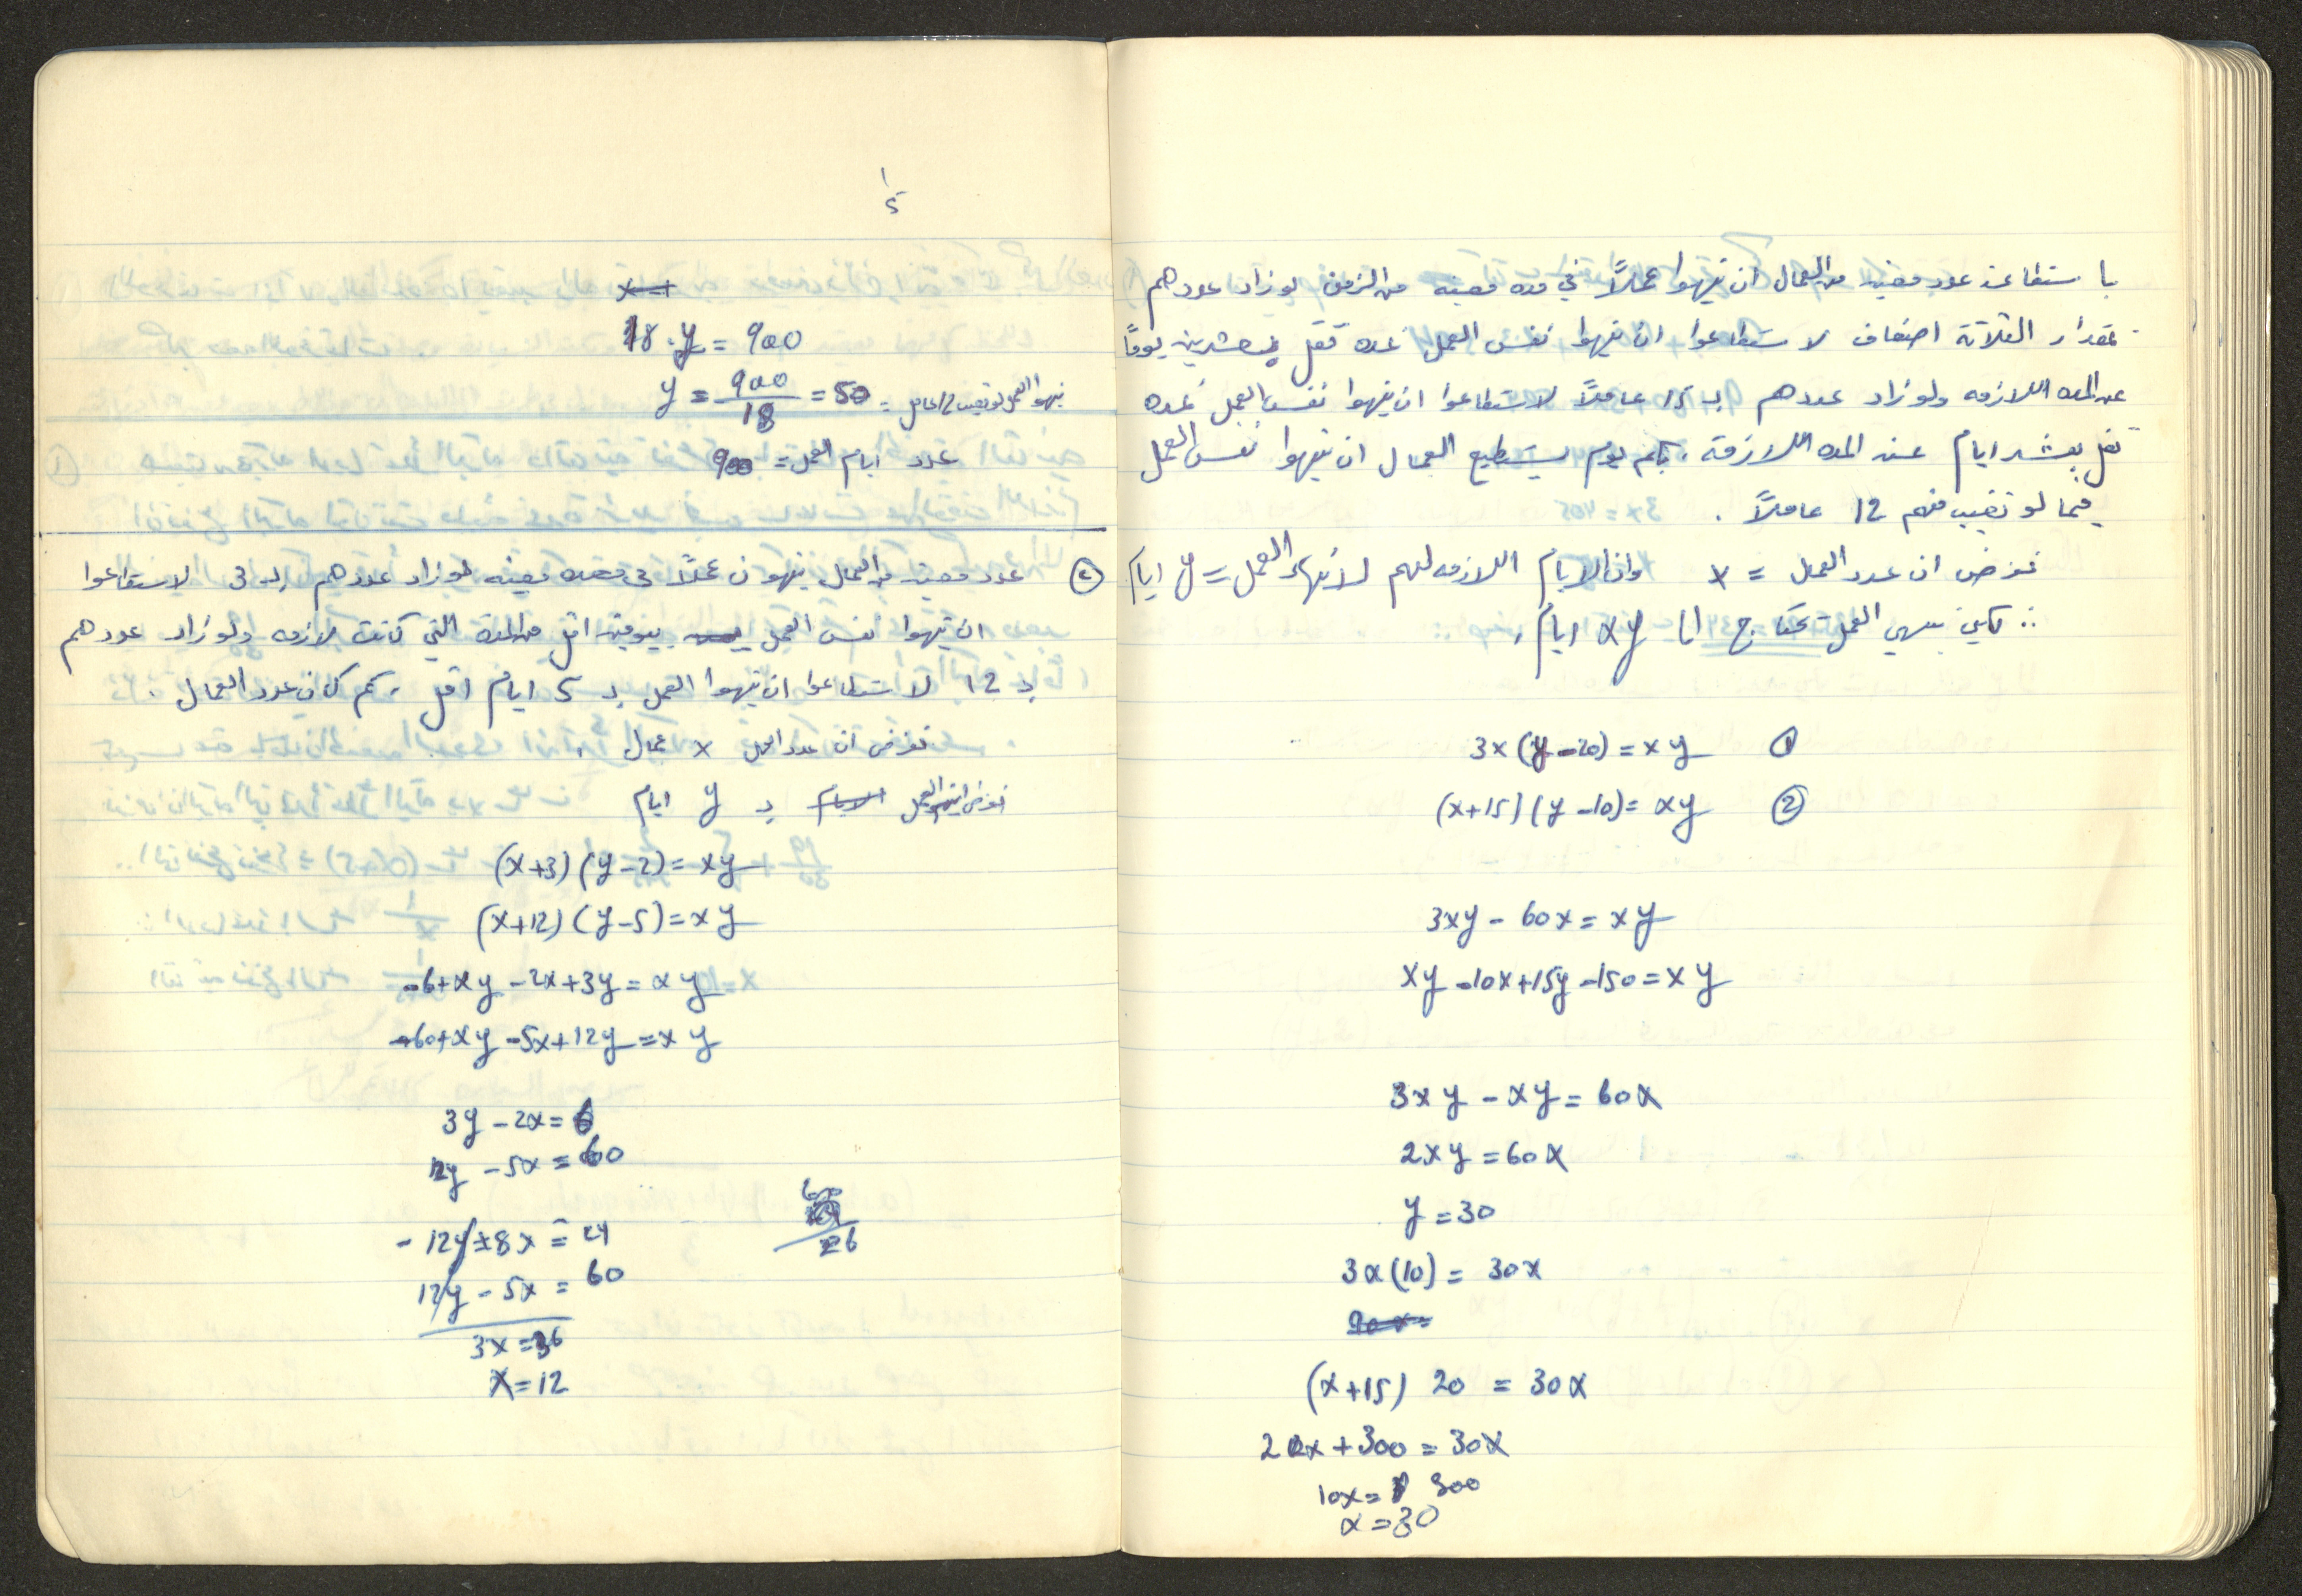 باستطاعة عدد معين من العمال ان ينهوا عملاً في مده معينه من الزمن لو زاد عددهم
بمقدار الثلاثة اضعاف لاستطاعوا ان ينهوا نفس العمل بمده تقل بعشرين يوماً
عن المده اللازمه ولو زاد عددهم بـ 15 عاملاً لاستطاعوا ان ينهوا نفس العمل بمده
تقل بعشر ايام عن المده اللازمة، بكم يوم يستطيع العمال ان ينهوا نفس العمل
فيما لو تغيب منهم 12 عاملاً .
نفرض ان عدد العمال = x وان الايام اللازمه لهم لانهاء العمل = y ايام
∴ لكي ننهي العمل نحتاج الى xy ايام .
3x(y-20) = xy ①
(x+15)(y-10) = xy ②
3xy - 60x = xy
xy - 10x + 15y - 150 = xy
3xy - xy = 60x
2xy = 60x
y = 30
3x(10) = 30x
90x =
(x+15) 20 = 30x
20x + 300 = 30x
10x = 300
x = 30
1
5
18 · y = 900
y = 900/18 = 50 = ينهوا العمل لو تغيب 12 عامل
عدد ايام العمل = 900
② عدد معين من العمال ينهون عملاً في مده معينه لو زاد عددهم بـ 3 لاستطاعوا
ان ينهوا نفس العمل بيومين اقل من المدة التي كانت لازمه ولو زاد عددهم
بـ 12 لاستطاعوا ان ينهوا العمل بـ 5 ايام اقل ، كم كان عدد العمال .
نفرض ان عدد العمال x عمال .
نفرض انهم العمل الايام بـ y ايام
(x+3)(y-2) = xy
(x+12)(y-5) = xy
-6+xy - 2x+3y = xy
-60+xy - 5x+12y = xy
3y - 2x = 6
12y - 5x = 60
- 12y ± 8x = 24
12y - 5x = 60
3x = 36
x = 12